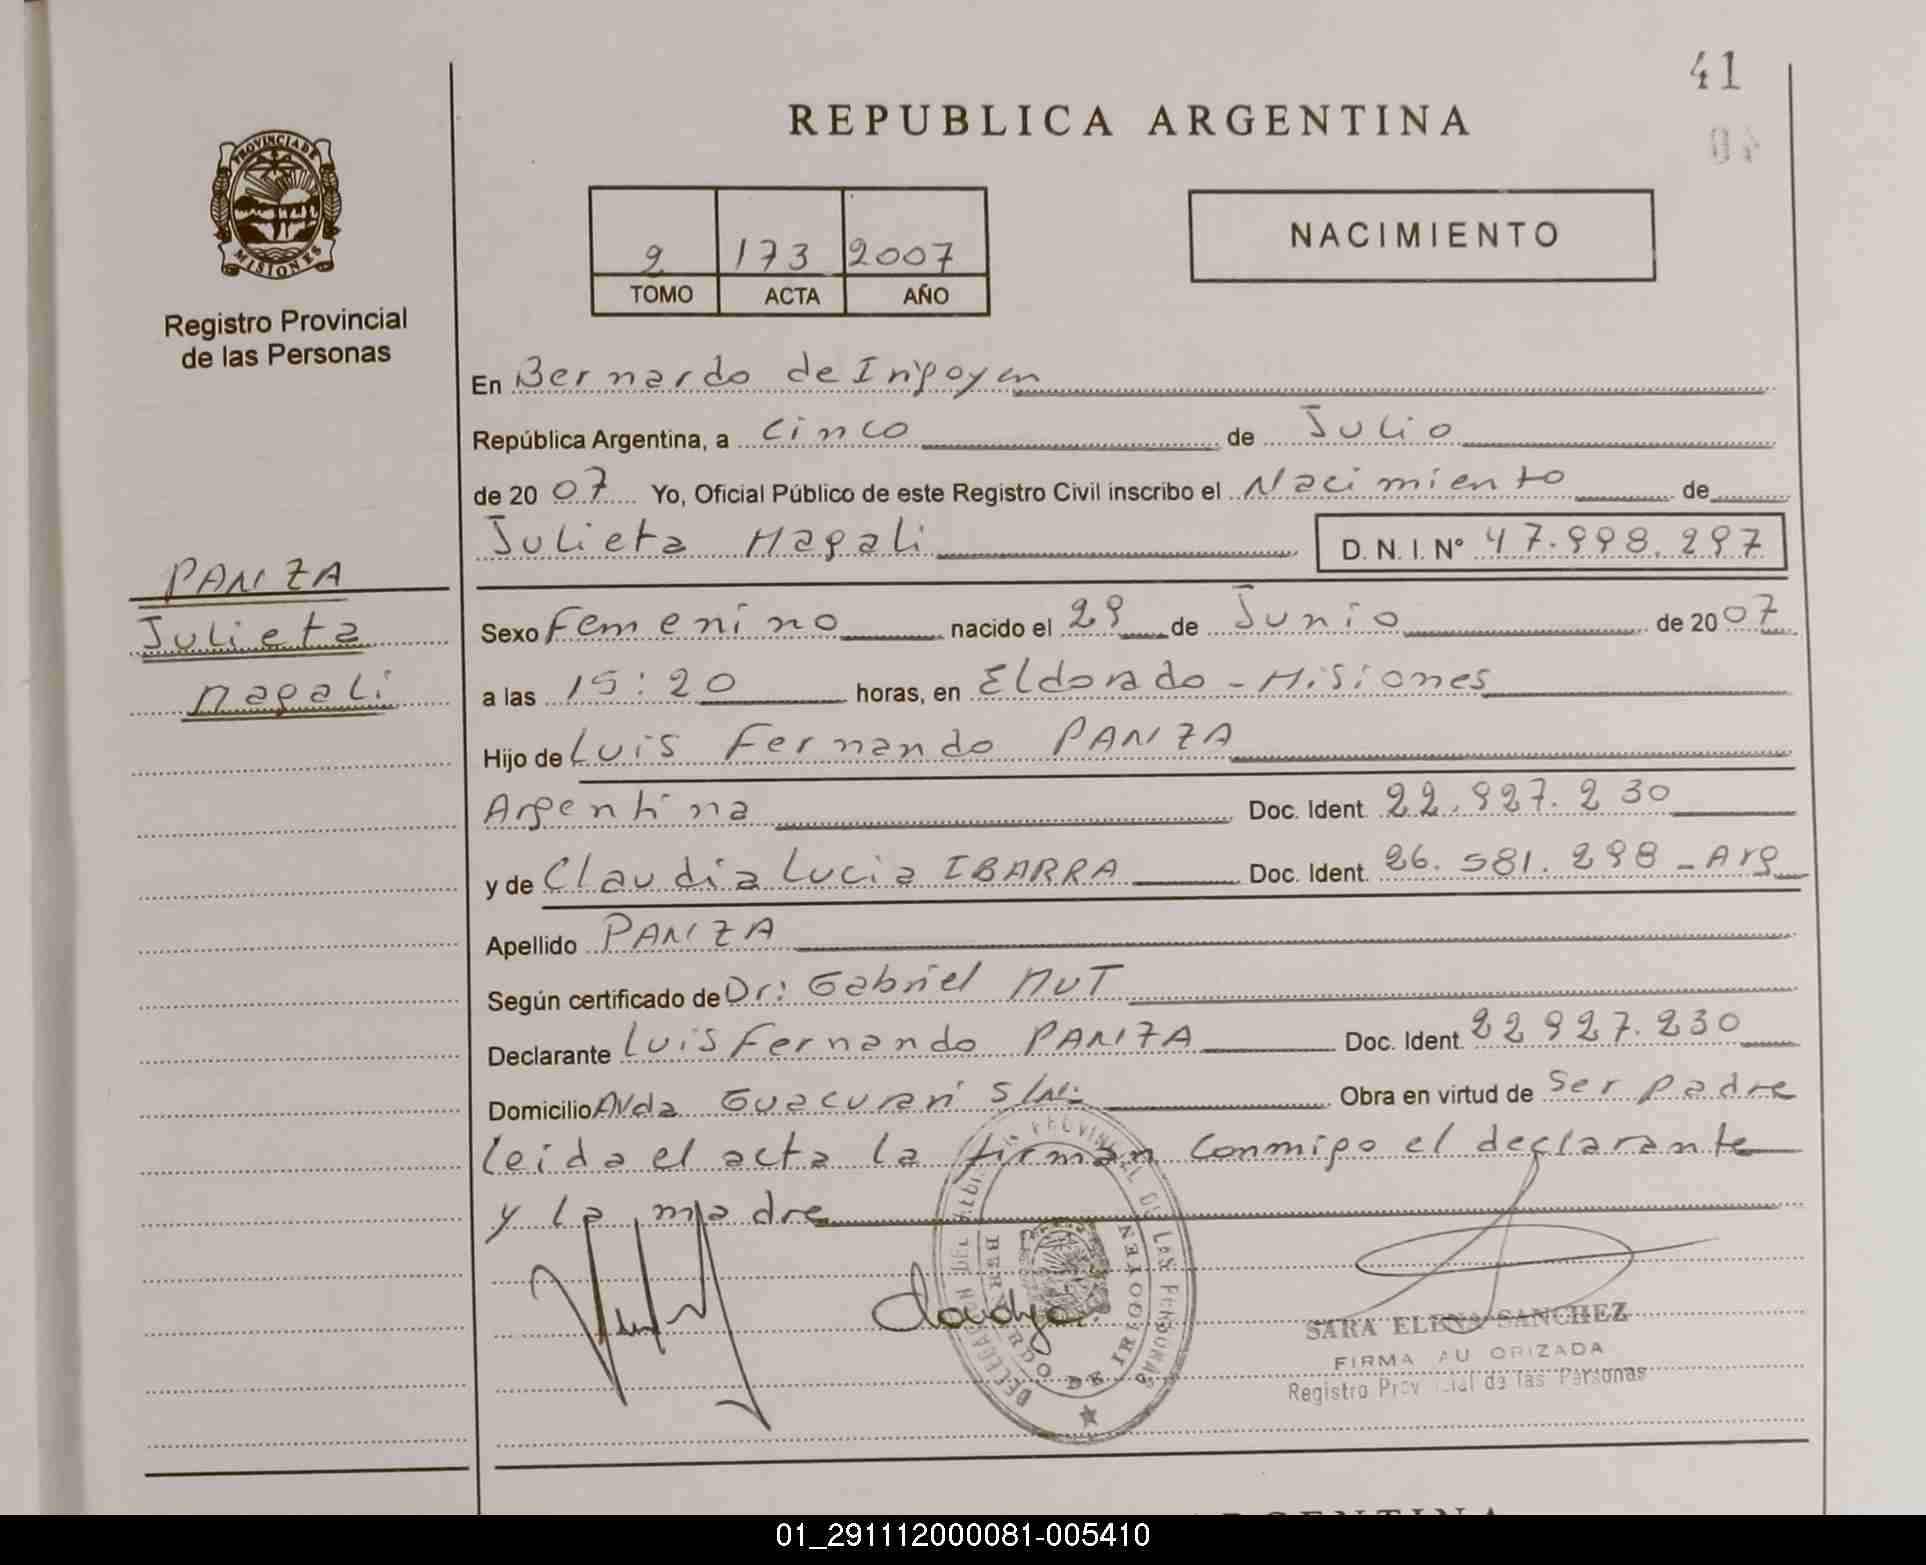 41
REPUBLICA ARGENTINA
PROVINCIA DE MISIONES
Registro Provincial
de las Personas
NACIMIENTO
2 173 2007
TOMO ACTA AÑO
En Bernardo de Irigoyen
República Argentina, a Cinco de Julio
de 20 07 Yo, Oficial Público de este Registro Civil inscribo el Nacimiento de
Julieta Magali D. N. I. Nº 47.998.297
PANZA
Julieta
Magali
Sexo Femenino nacido el 29 de Junio de 20 07
a las 15:20 horas, en Eldorado - Misiones
Hijo de Luis Fernando PANZA
Argentina Doc. Ident. 22.927.230
y de Claudia Lucia IBARRA Doc. Ident. 26.581.298 - Arg
Apellido PANZA
Según certificado de Dr: Gabriel MUT
Declarante Luis Fernando PANZA Doc. Ident. 22 927.230
Domicilio Avda Guacurari S/Nº Obra en virtud de Ser padre
Leida el acta la firman conmigo el declarante
y la madre
Claudya
SARA ELENA SANCHEZ
FIRMA AU ORIZADA
Registro Prov cial de las Personas
01_291112000081-005410